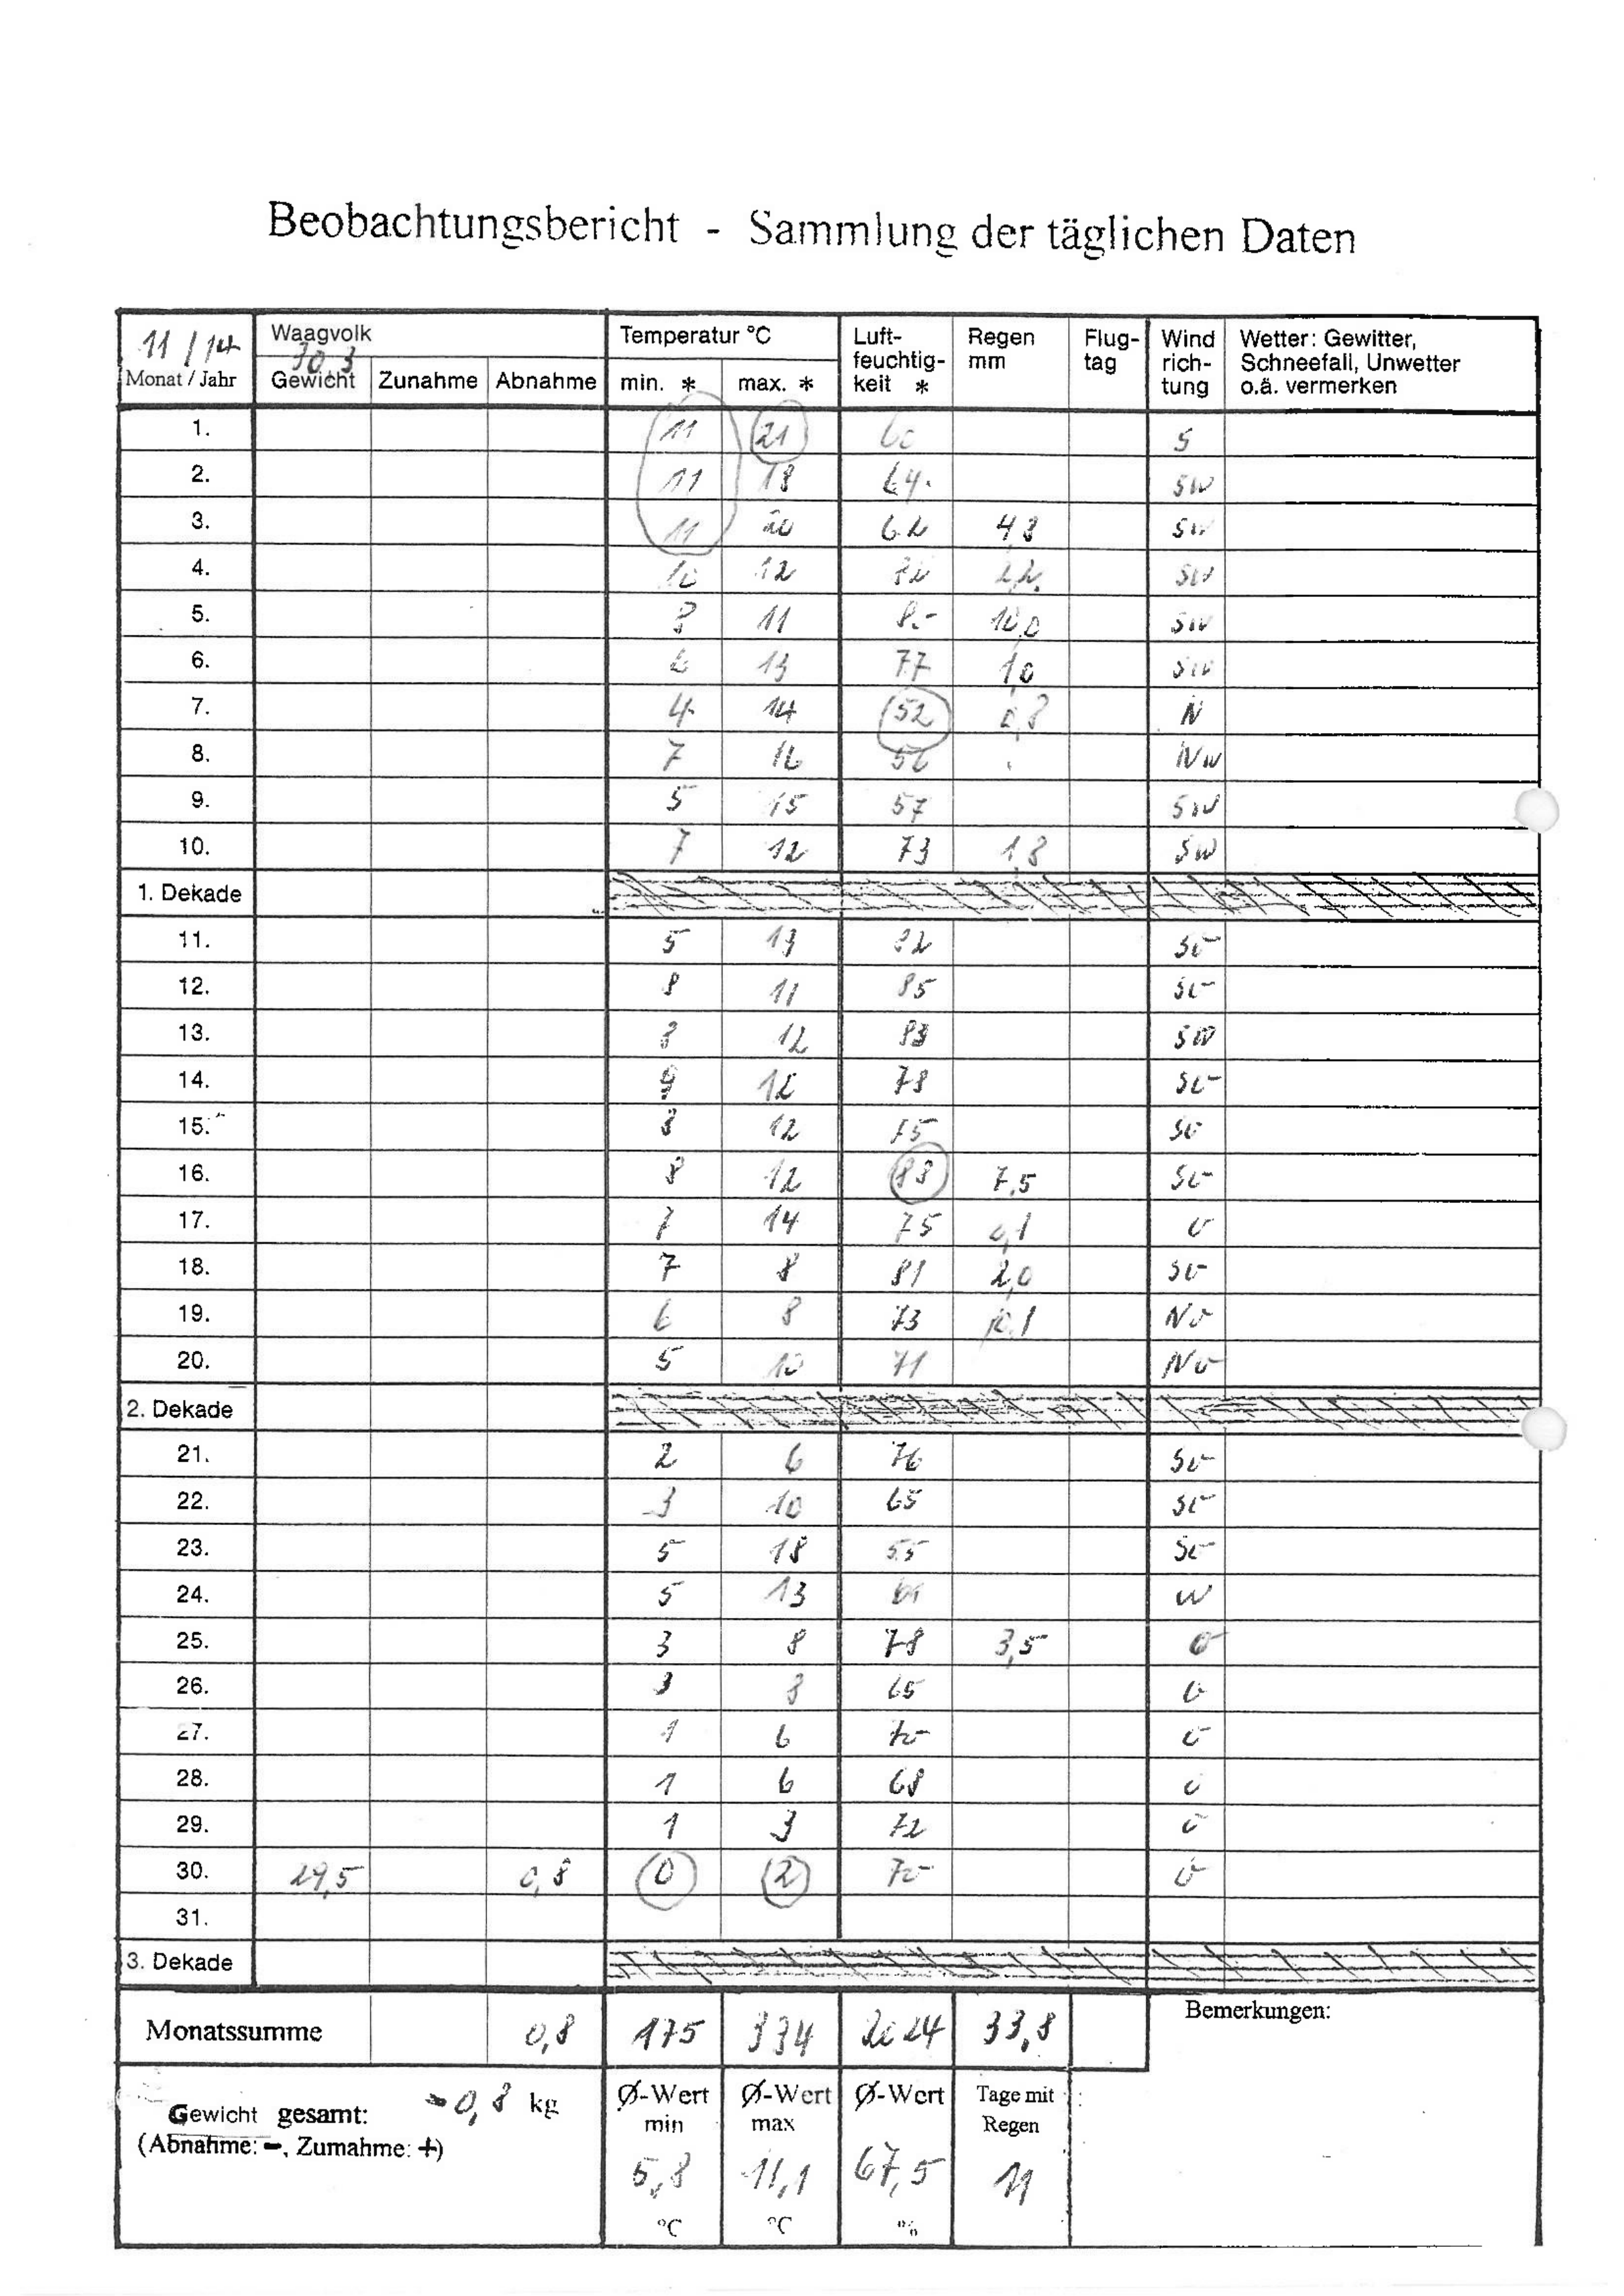 Beobachtungsbericht - Sammlung der täglichen Daten
11/14 Monat / Jahr
Waagvolk 303
Gewicht Zunahme Abnahme
Temperatur °C
min. * max. *
Luft-feuchtig-keit *
Regen mm
Flug-tag
Wind rich-tung
Wetter: Gewitter, Schneefall, Unwetter o.ä. vermerken
1. 11 21 60 S
2. 11 18 64 SW
3. 11 20 62 4,8 SW
4. 10 12 2,2 SW
5. 8 11 10,0 SW
6. 6 13 77 1,0 SW
7. 4 14 52 0,8 N
8. 7 16 56 NW
9. 5 15 57 SW
10. 7 12 73 1,8 SW
1. Dekade
11. 5 13 82 SO
12. 8 11 85 SO
13. 8 12 SW
14. 9 78 SO
15. 8 12 75 SO
16. 8 12 88 7,5 SO
17. 7 14 75 0,1 O
18. 7 8 81 2,0 SO
19. 6 8 73 0,1 NO
20. 5 10 71 NO
2. Dekade
21. 2 6 76 SO
22. 3 10 65 SO
23. 5 18 55 SO
24. 5 13 W
25. 3 8 78 3,5 O
26. 3 8 65 O
27. 1 6 70 O
28. 1 6 68 O
29. 1 3 72 O
30. 29,5 0,8 0 2 70 O
31.
3. Dekade
Monatssumme 0,8 175 334 2024 33,8
Bemerkungen:
Gewicht gesamt: -0,8 kg
(Abnahme: -, Zumahme: +)
Ø-Wert min 5,8 °C
Ø-Wert max 11,1 °C
Ø-Wert 67,5 %
Tage mit Regen 11